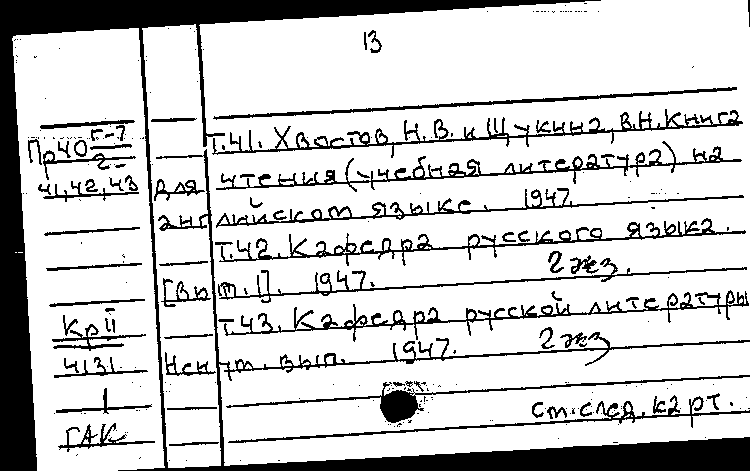 13
Пр40 Г-7/2-
41,42,43
Т.41. Хвостов, Н.В. и Щукина, В.Н. Книга
для чтения (учебная литература) на
английском языке. 1947.
Т.42. Кафедра русского языка.
[Вып.1]. 1947. 2 экз.
Т.43. Кафедра русской литературы
Ненум. вып. 1947. 2 экз
Кр II
4131
1
ГАК
см. след. карт.